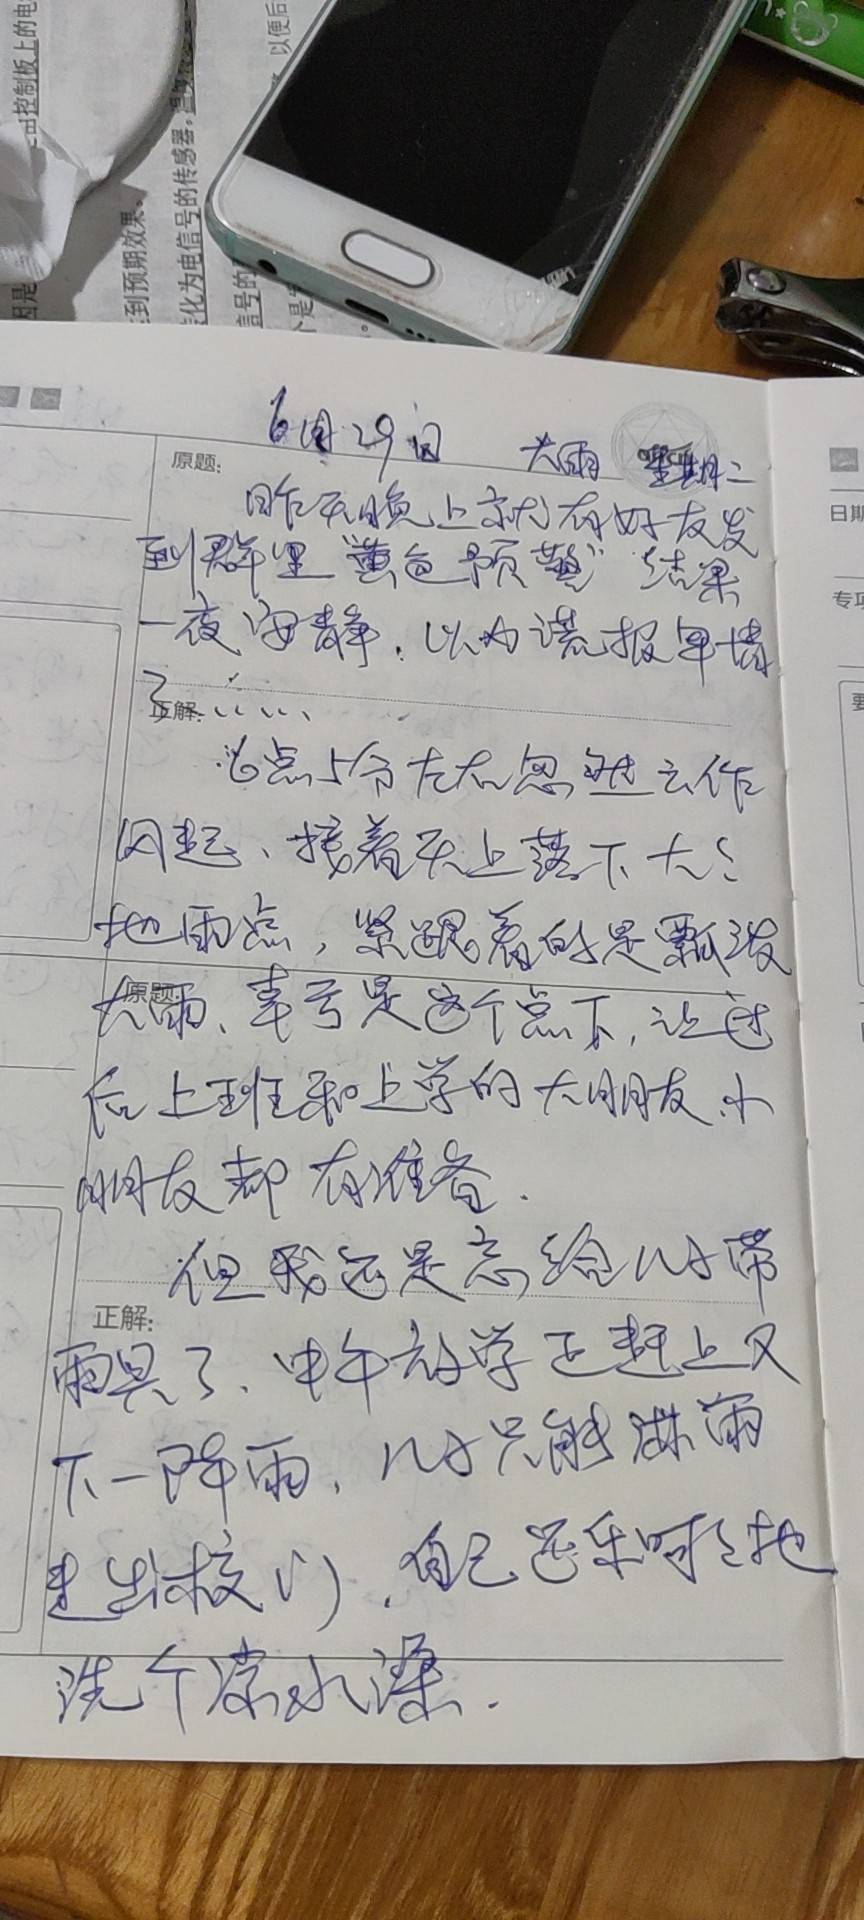 以便后
出控制板上的电
到预期效果。
化为电信号的传感器。
信号的
个是
因是
6月29日 大雨 星期二
原题:
昨天晚上就有好友发
到群里“黄色预警”结果
一夜安静,以为谎报军情
了……
正解:
6点5分左右忽然云作
闪起、接着天上落下大大
地雨点,紧跟着的是瓢泼
大雨、幸亏是这个点下,让过
原题:
后上班和上学的大朋友、小
朋友都有准备.
但我还是忘给儿子带
正解:
雨具了、中午放学正赶上又
下一阵雨、儿子只能淋雨
走出校门,自己还乐呵呵地
洗个凉水澡.
日期
专项
要